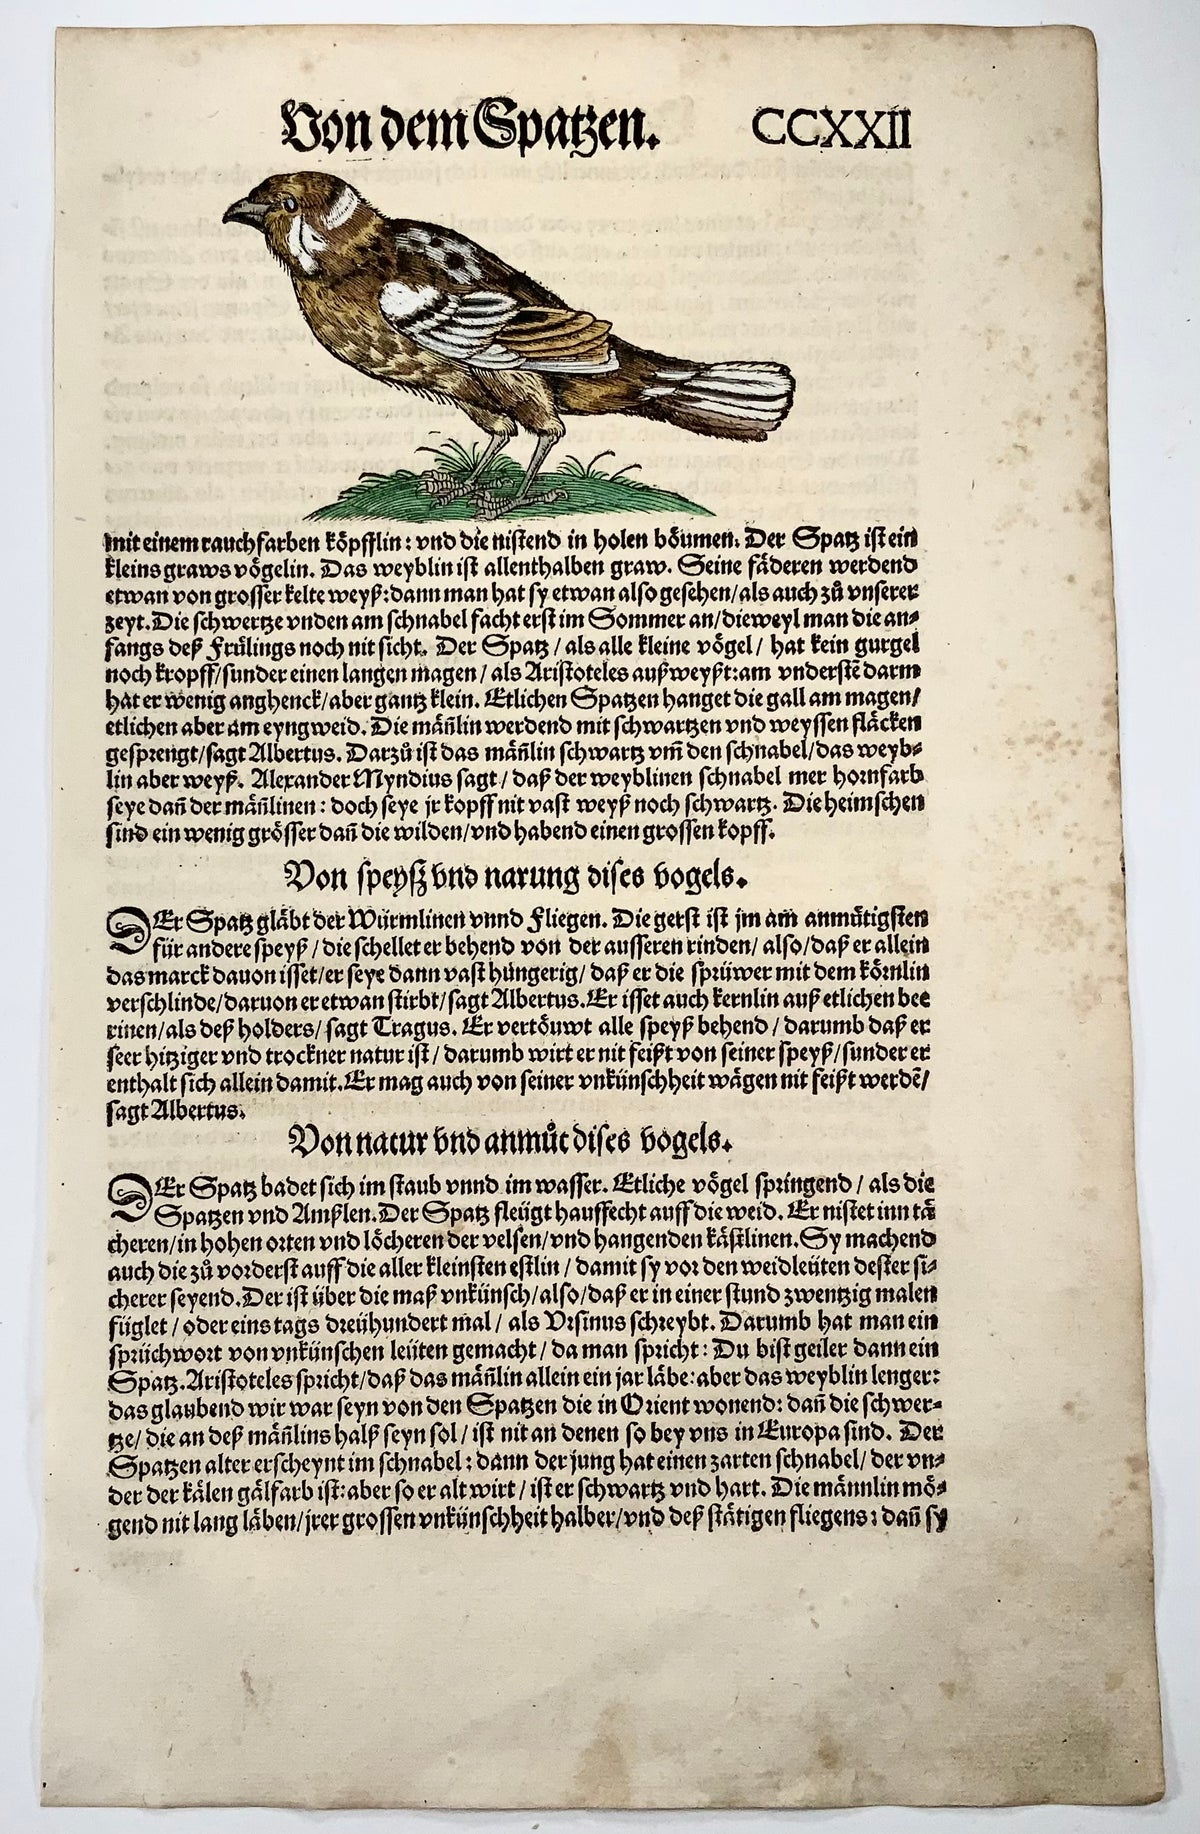 Von dem Spatzen. CCXXII
mit einem rauchfarben köpfflin: vnd die nistend in holen böumen. Der Spatz ist ein
kleins graws vögelin. Das weyblin ist allenthalben graw. Seine fäderen werdend
etwan von grosser kelte weyß: dann man hat sy etwan also gesehen/ als auch zů vnserer
zeyt. Die schwertze vnden am schnabel facht erst im Sommer an/ dieweyl man die an⸗
fangs deß Frülings noch nit sicht. Der Spatz/ als alle kleine vögel/ hat kein gurgel
noch kropff/ sunder einen langen magen/ als Aristoteles außweyßt: am vnderstē darm
hat er wenig anghenck/ aber gantz klein. Etlichen Spatzen hanget die gall am magen/
etlichen aber am eyngweid. Die mäñlin werdend mit schwartzen vnd weyssen fläcken
gesprengt/ sagt Albertus. Darzů ist das mäñlin schwartz vm̃ den schnabel/ das weyb⸗
lin aber weyß. Alexander Myndius sagt/ daß der weyblinen schnabel mer hornfarb
seye dañ der mäñlinen: doch seye jr kopff nit vast weyß noch schwartz. Die heimschen
sind ein wenig grösser dañ die wilden/ vnd habend einen grossen kopff.
Von speysz vnd narung dises vogels.
DEr Spatz gläbt der Würmlinen vnnd Fliegen. Die gerst ist jm am anmütigsten
für andere speyß/ die schellet er behend von der ausseren rinden/ also/ daß er allein
das marck dauon isset/ er seye dann vast hüngerig/ daß er die sprüwer mit dem körnlin
verschlinde/ daruon er etwan stirbt/ sagt Albertus. Er isset auch kernlin auß etlichen bee
rinen/ als deß holders/ sagt Tragus. Er vertöuwt alle speyß behend/ darumb daß er
seer hitziger vnd trockner natur ist/ darumb wirt er nit feißt von seiner speyß/ sunder er
enthalt sich allein damit. Er mag auch von seiner vnkünschheit wägen nit feißt werdē/
sagt Albertus.
Von natur vnd anmůt dises vogels.
DEr Spatz badet sich im staub vnnd im wasser. Etliche vögel springend/ als die
Spatzen vnd Amßlen. Der Spatz fleügt hauffecht auff die weid. Er nistet inn tä
cheren/ in hohen orten vnd löcheren der velsen/ vnd hangenden kästlinen. Sy machend
auch die zů vorderst auff die aller kleinsten estlin/ damit sy vor den weidleüten dester si⸗
cherer seyend. Der ist über die maß vnkünsch/ also/ daß er in einer stund zwentzig malen
füglet/ oder eins tags dreühundert mal/ als Vrsinus schreybt. Darumb hat man ein
sprüchwort von vnkünschen leüten gemacht/ da man spricht: Du bist geiler dann ein
Spatz. Aristoteles spricht/ daß das mäñlin allein ein jar läbe: aber das weyblin lenger:
das glaubend wir war seyn von den Spatzen die in Orient wonend: dañ die schwer⸗
tze/ die an deß mäñlins halß seyn sol/ ist nit an denen so bey vns in Europa sind. Der
Spatzen alter erscheynt im schnabel: dann der jung hat einen zarten schnabel/ der vn⸗
der der kälen gälfarb ist: aber so er alt wirt/ ist er schwartz vnd hart. Die männlin mö⸗
gend nit lang läben/ jrer grossen vnkünschheit halber/ vnd deß stätigen fliegens: dañ sy